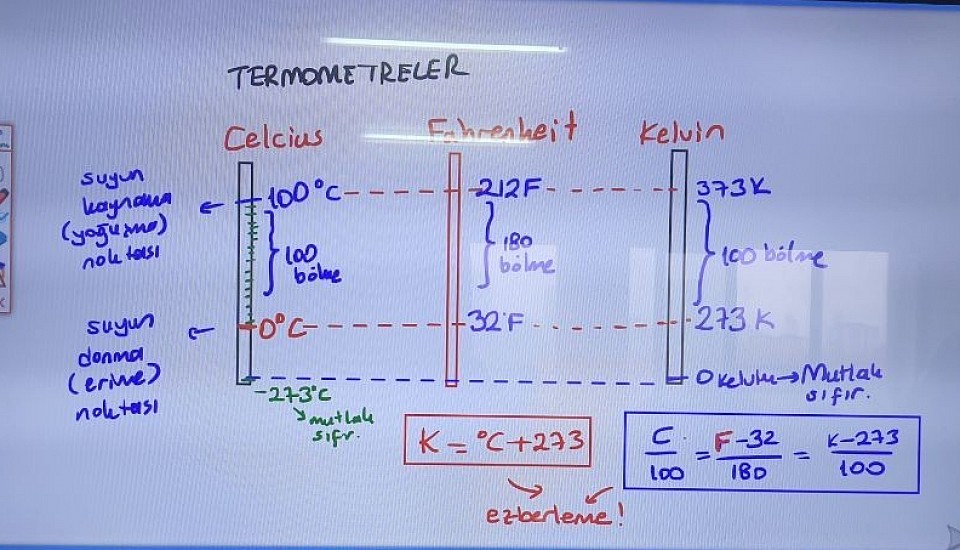 TERMOMETRELER
Celcius
Fahrenheit
Kelvin
suyun
kaynama
(yoğuşma)
noktası
100°C
212F
373K
100
bölme
180
bölme
100 bölme
suyun
donma
(erime)
noktası
0°C
32°F
273 K
-273°C
mutlak
sıfır.
0 Kelvin → Mutlak
sıfır.
K = °C + 273
C/100 = F-32/180 = K-273/100
ezberleme!